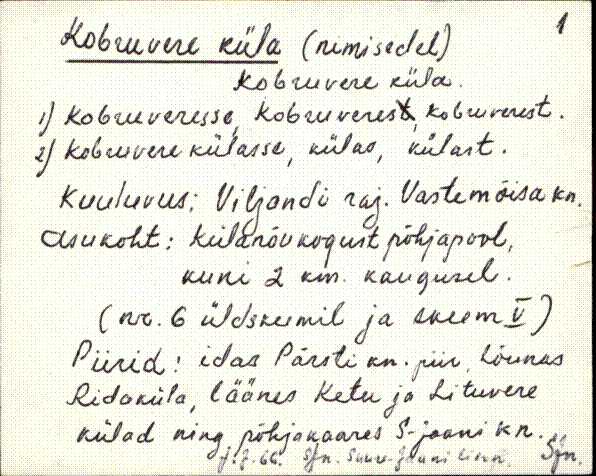 1
Kobruvere küla (nimisedel)
Kobruvere küla.
1) Kobruveresse, Kobruveres, Kobruverest.
2) Kobruvere külasse, külas, külast.
Kuuluvus: Viljandi raj. Vastemõisa kn.
Asukoht: külanõukogust põhjapool,
kuni 2 km. kaugusel.
(nr. 6 üldskeemil ja skeem V)
Piirid: idas Pärsti kn. piir, lõunas
Ridaküla, läänes Ketu ja Lituvere
külad ning põhjakaares S-Jaani kn.
Sjn. Suure-Jaani Sjn.